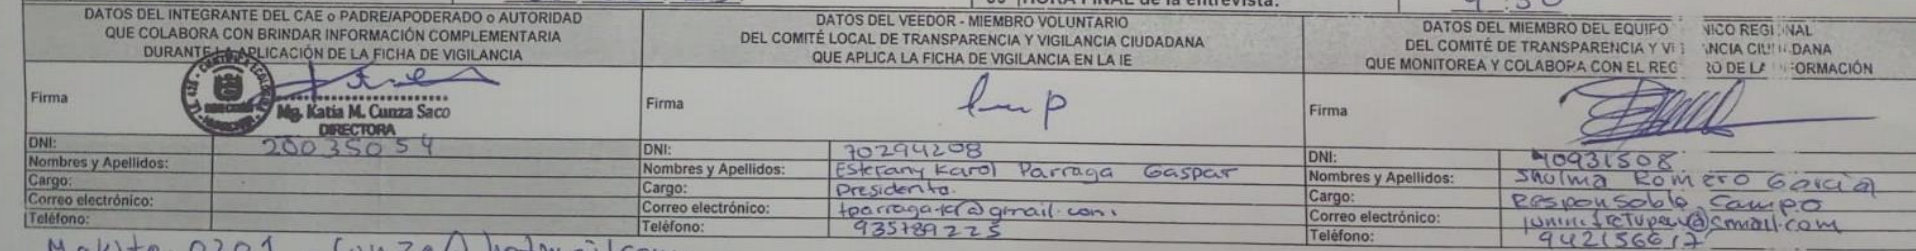 HORA FINAL de la entrevista:
DATOS DEL INTEGRANTE DEL CAE o PADRE/APODERADO o AUTORIDAD
QUE COLABORA CON BRINDAR INFORMACIÓN COMPLEMENTARIA
DURANTE LA APLICACIÓN DE LA FICHA DE VIGILANCIA
Firma
Mg. Katia M. Cunza Saco
DIRECTORA
DNI: 20035054
Nombres y Apellidos:
Cargo:
Correo electrónico:
Teléfono:
DATOS DEL VEEDOR - MIEMBRO VOLUNTARIO
DEL COMITÉ LOCAL DE TRANSPARENCIA Y VIGILANCIA CIUDADANA
QUE APLICA LA FICHA DE VIGILANCIA EN LA IE
Firma
DNI: 70294208
Nombres y Apellidos: Esterany Karol Parraga Gaspar
Cargo: Presidenta.
Correo electrónico:
Teléfono: 935789225
DATOS DEL MIEMBRO DEL EQUIPO NICO REGI NAL
DEL COMITÉ DE TRANSPARENCIA Y VI ANCIA CIU DANA
QUE MONITOREA Y COLABORA CON EL REG RO DE LA FORMACIÓN
Firma
DNI: 40931508
Nombres y Apellidos: Shulma Romero Garcia
Cargo: Responsable Campo
Correo electrónico:
Teléfono: